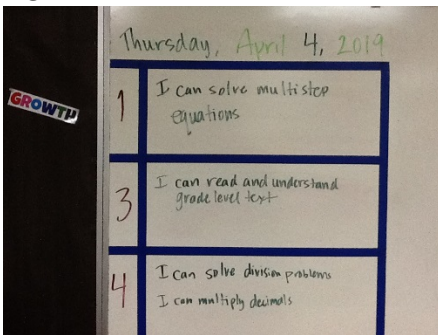 Thursday, April 4, 2019
GROWTH
1
I can solve multistep
equations
3
I can read and understand
grade level text
4
I can solve division problems
I can multiply decimals